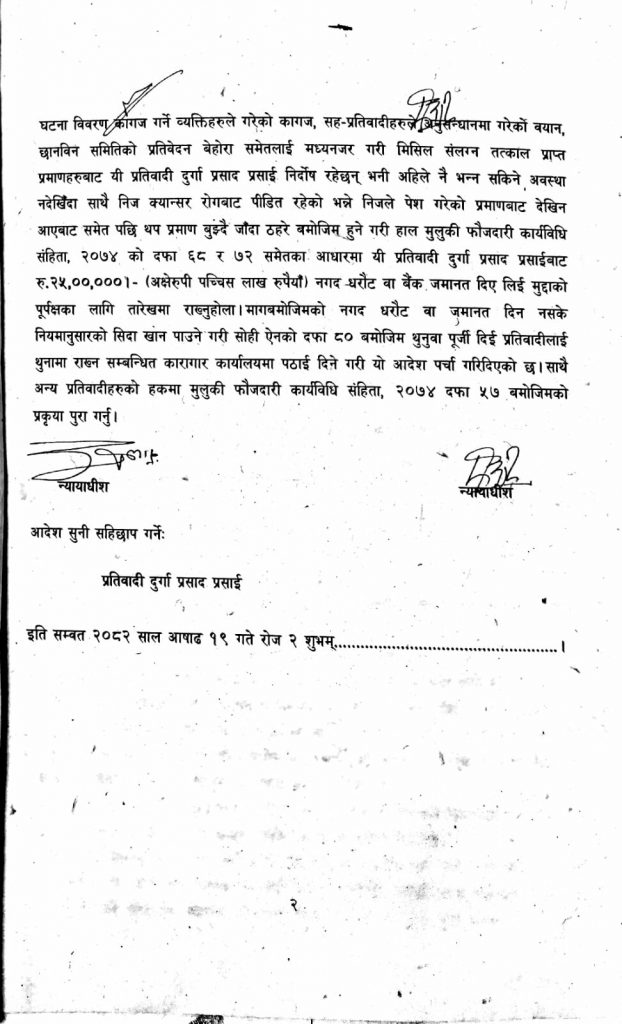 घटना विवरण कागज गर्ने व्यक्तिहरुले गरेको कागज, सह-प्रतिवादीहरुले अनुसन्धानमा गरेको बयान,
छानविन समितिको प्रतिवेदन बेहोरा समेतलाई मध्यनजर गरी मिसिल संलग्न तत्काल प्राप्त
प्रमाणहरुबाट यी प्रतिवादी दुर्गा प्रसाद प्रसाई निर्दोष रहेछन् भनी अहिले नै भन्न सकिने अवस्था
नदेखिँदा साथै निज क्यान्सर रोगबाट पीडित रहेको भन्ने निजले पेश गरेको प्रमाणबाट देखिन
आएबाट समेत पछि थप प्रमाण बुझ्दै जाँदा ठहरे बमोजिम हुने गरी हाल मुलुकी फौजदारी कार्यविधि
संहिता, २०७४ को दफा ६८ र ७२ समेतका आधारमा यी प्रतिवादी दुर्गा प्रसाद प्रसाईबाट
रु.२५,००,०००।- (अक्षेरुपी पच्चिस लाख रुपैयाँ) नगद धरौट वा बैंक जमानत दिए लिई मुद्दाको
पूर्पक्षका लागि तारेखमा राख्नुहोला। मागबमोजिमको नगद धरौट वा जमानत दिन नसके
नियमानुसारको सिदा खान पाउने गरी सोही ऐनको दफा ८० बमोजिम थुनुवा पूर्जी दिई प्रतिवादीलाई
थुनामा राख्न सम्बन्धित कारागार कार्यालयमा पठाई दिने गरी यो आदेश पर्चा गरिदिएको छ। साथै
अन्य प्रतिवादीहरुको हकमा मुलुकी फौजदारी कार्यविधि संहिता, २०७४ दफा ५७ बमोजिमको
प्रकृया पुरा गर्नु।
न्यायाधीश
न्यायाधीश
आदेश सुनी सहिछाप गर्नेः
प्रतिवादी दुर्गा प्रसाद प्रसाई
इति सम्बत २०८२ साल आषाढ १९ गते रोज २ शुभम्.....................................................।
२